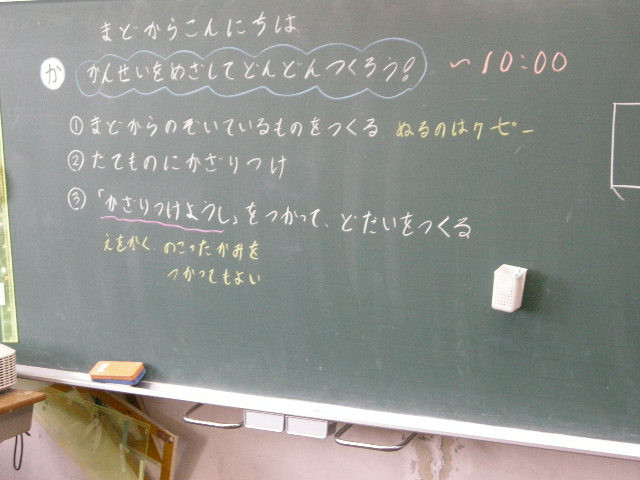 まどからこんにちは
か かんせいをめざしてどんどんつくろう! ~10:00
①まどからのぞいているものをつくる ぬるのはクーピー
②たてものにかざりつけ
③「かざりつけようし」をつかって、どだいをつくる
えをかく のこったかみを
つかってもよい